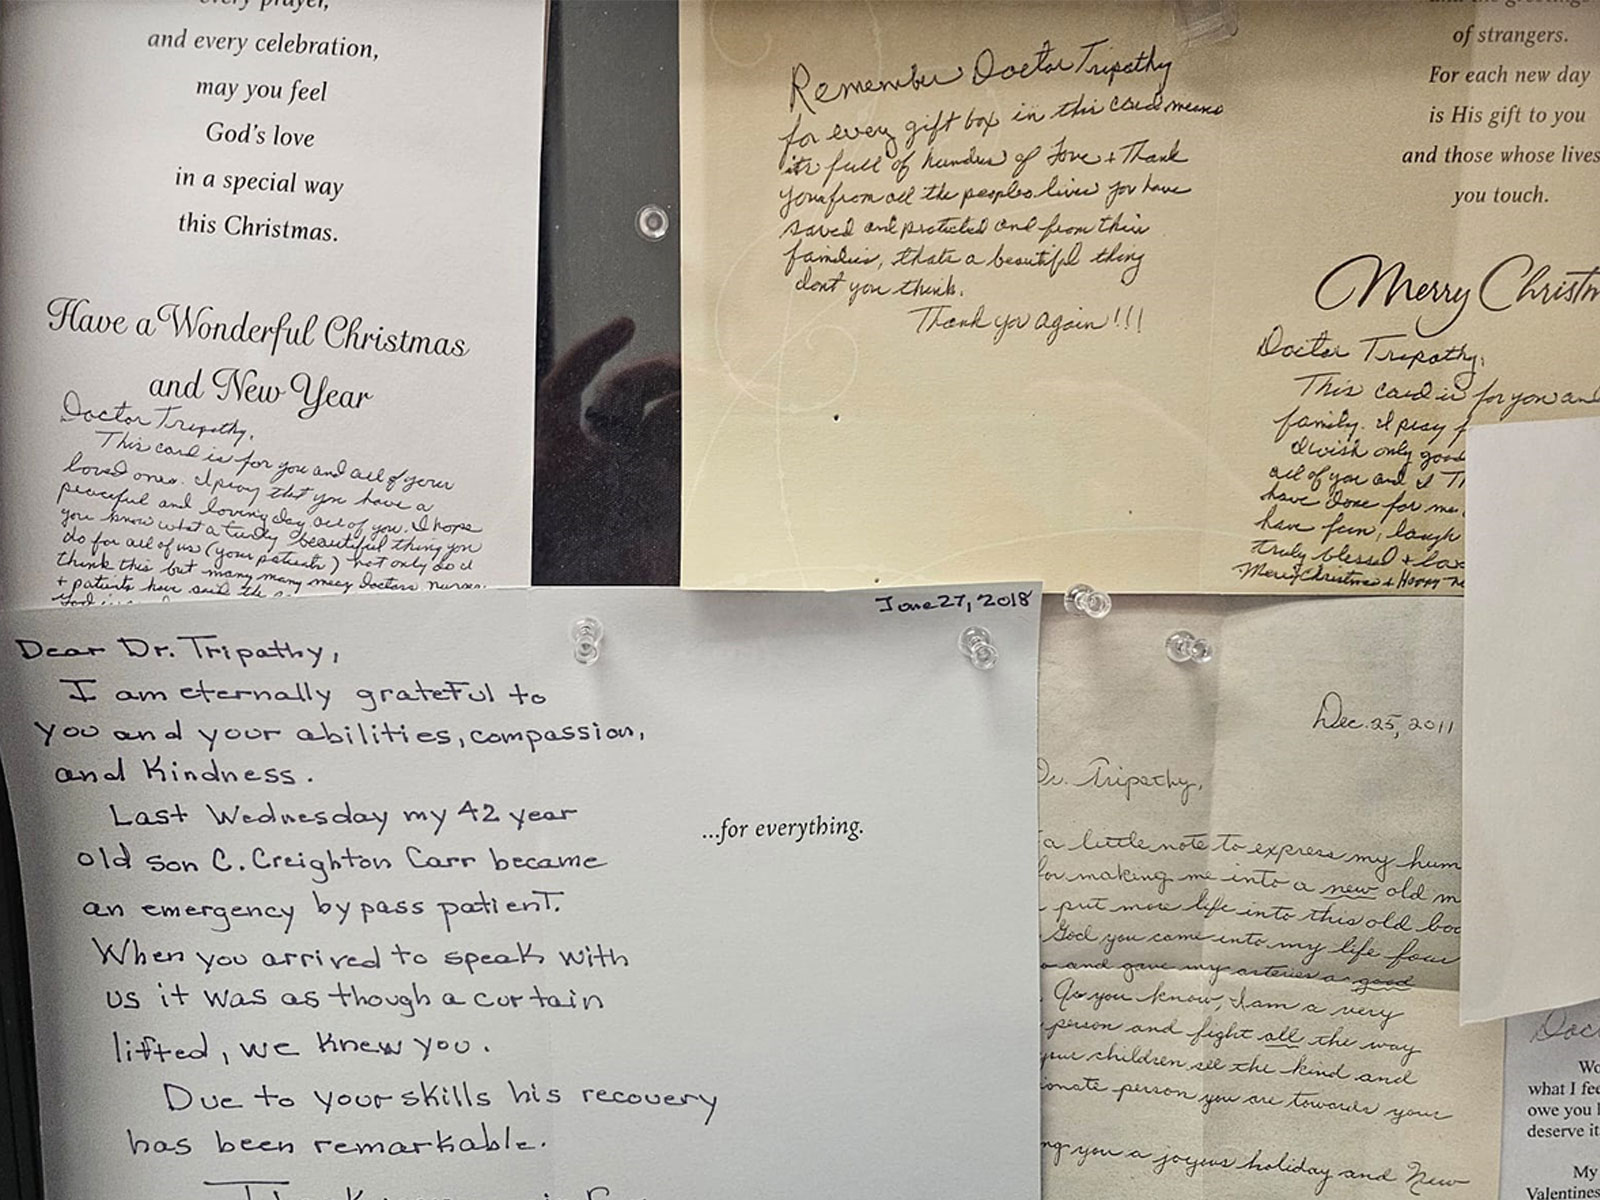 every prayer,
and every celebration,
may you feel
God's love
in a special way
this Christmas.
Have a Wonderful Christmas
and New Year
Doctor Tripathy,
This card is for you and all of your
loved ones. I pray that you have a
peaceful and loving day all of you. I hope
you know what a truly beautiful thing you
do for all of us (your patients) not only do I
think this but many many many doctors nurses
+ patients have said the
Remember Doctor Tripathy
for every gift box in this card means
its full of hundres of Love + Thank
yous from all the peoples lives you have
saved and protected and from their
families, thats a beautiful thing
dont you think.
Thank you again!!!
of strangers.
For each new day
is His gift to you
and those whose lives
you touch.
Merry Christm
Doctor Tripathy,
This card is for you and
family. I pray f
I wish only good
all of you and I Th
have done for me.
have fun, laugh
truly blessed + lov
Merry Christmas + Happy Ne
June 27, 2018
Dear Dr. Tripathy,
I am eternally grateful to
you and your abilities, compassion,
and kindness.
Last Wednesday my 42 year
old son C. Creighton Carr became
an emergency bypass patient.
When you arrived to speak with
us it was as though a curtain
lifted, we knew you.
Due to your skills his recovery
has been remarkable.
...for everything.
Dec. 25, 2011
Dr. Tripathy,
a little note to express my hum
for making me into a new old m
put more life into this old bod
God you came into my life four
and gave my arteries a good
As you know, I am a very
person and fight all the way
your children see the kind and
ionate person you are towards your
ng you a joyous holiday and New
Doc
Wo
what I fee
owe you l
deserve it
My
Valentines